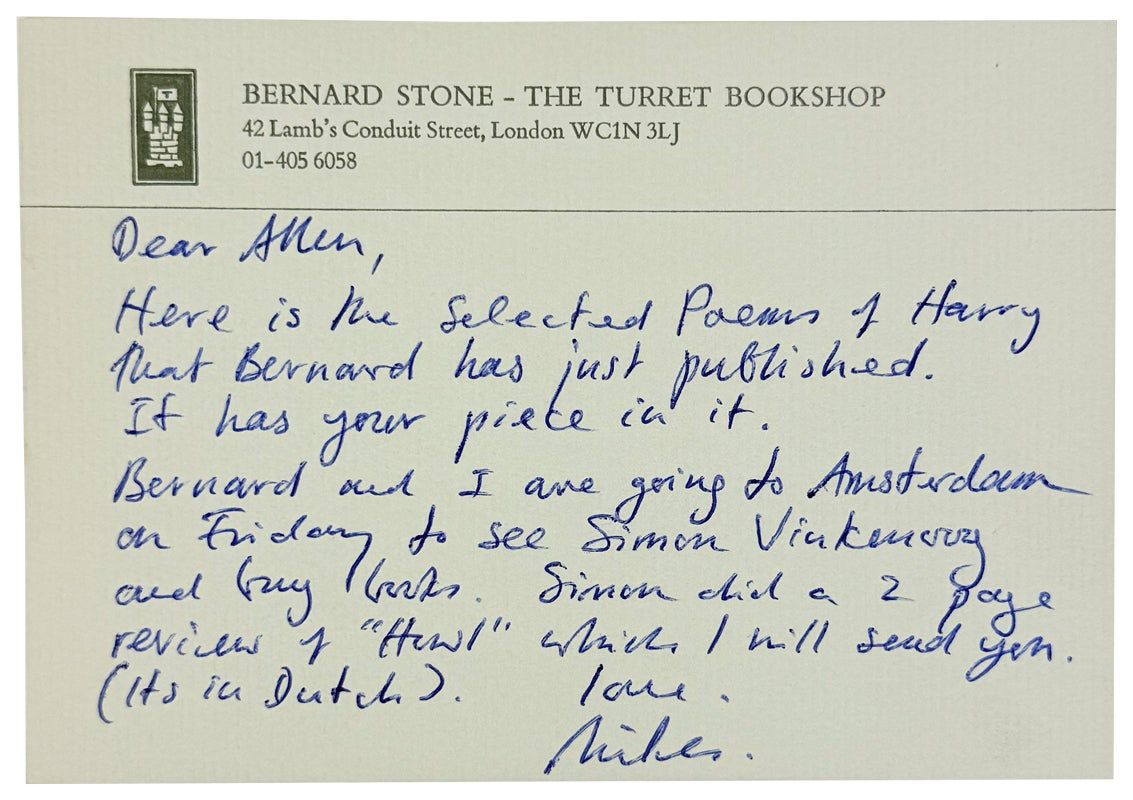 BERNARD STONE – THE TURRET BOOKSHOP
42 Lamb's Conduit Street, London WC1N 3LJ
01–405 6058
Dear Allen,
Here is the Selected Poems of Harry
that Bernard has just published.
It has your piece in it.
Bernard and I are going to Amsterdam
on Friday to see Simon Vinkenoog
and buy books. Simon did a 2 page
review of "Howl" which I will send you.
(Its in Dutch). love.
Miles.